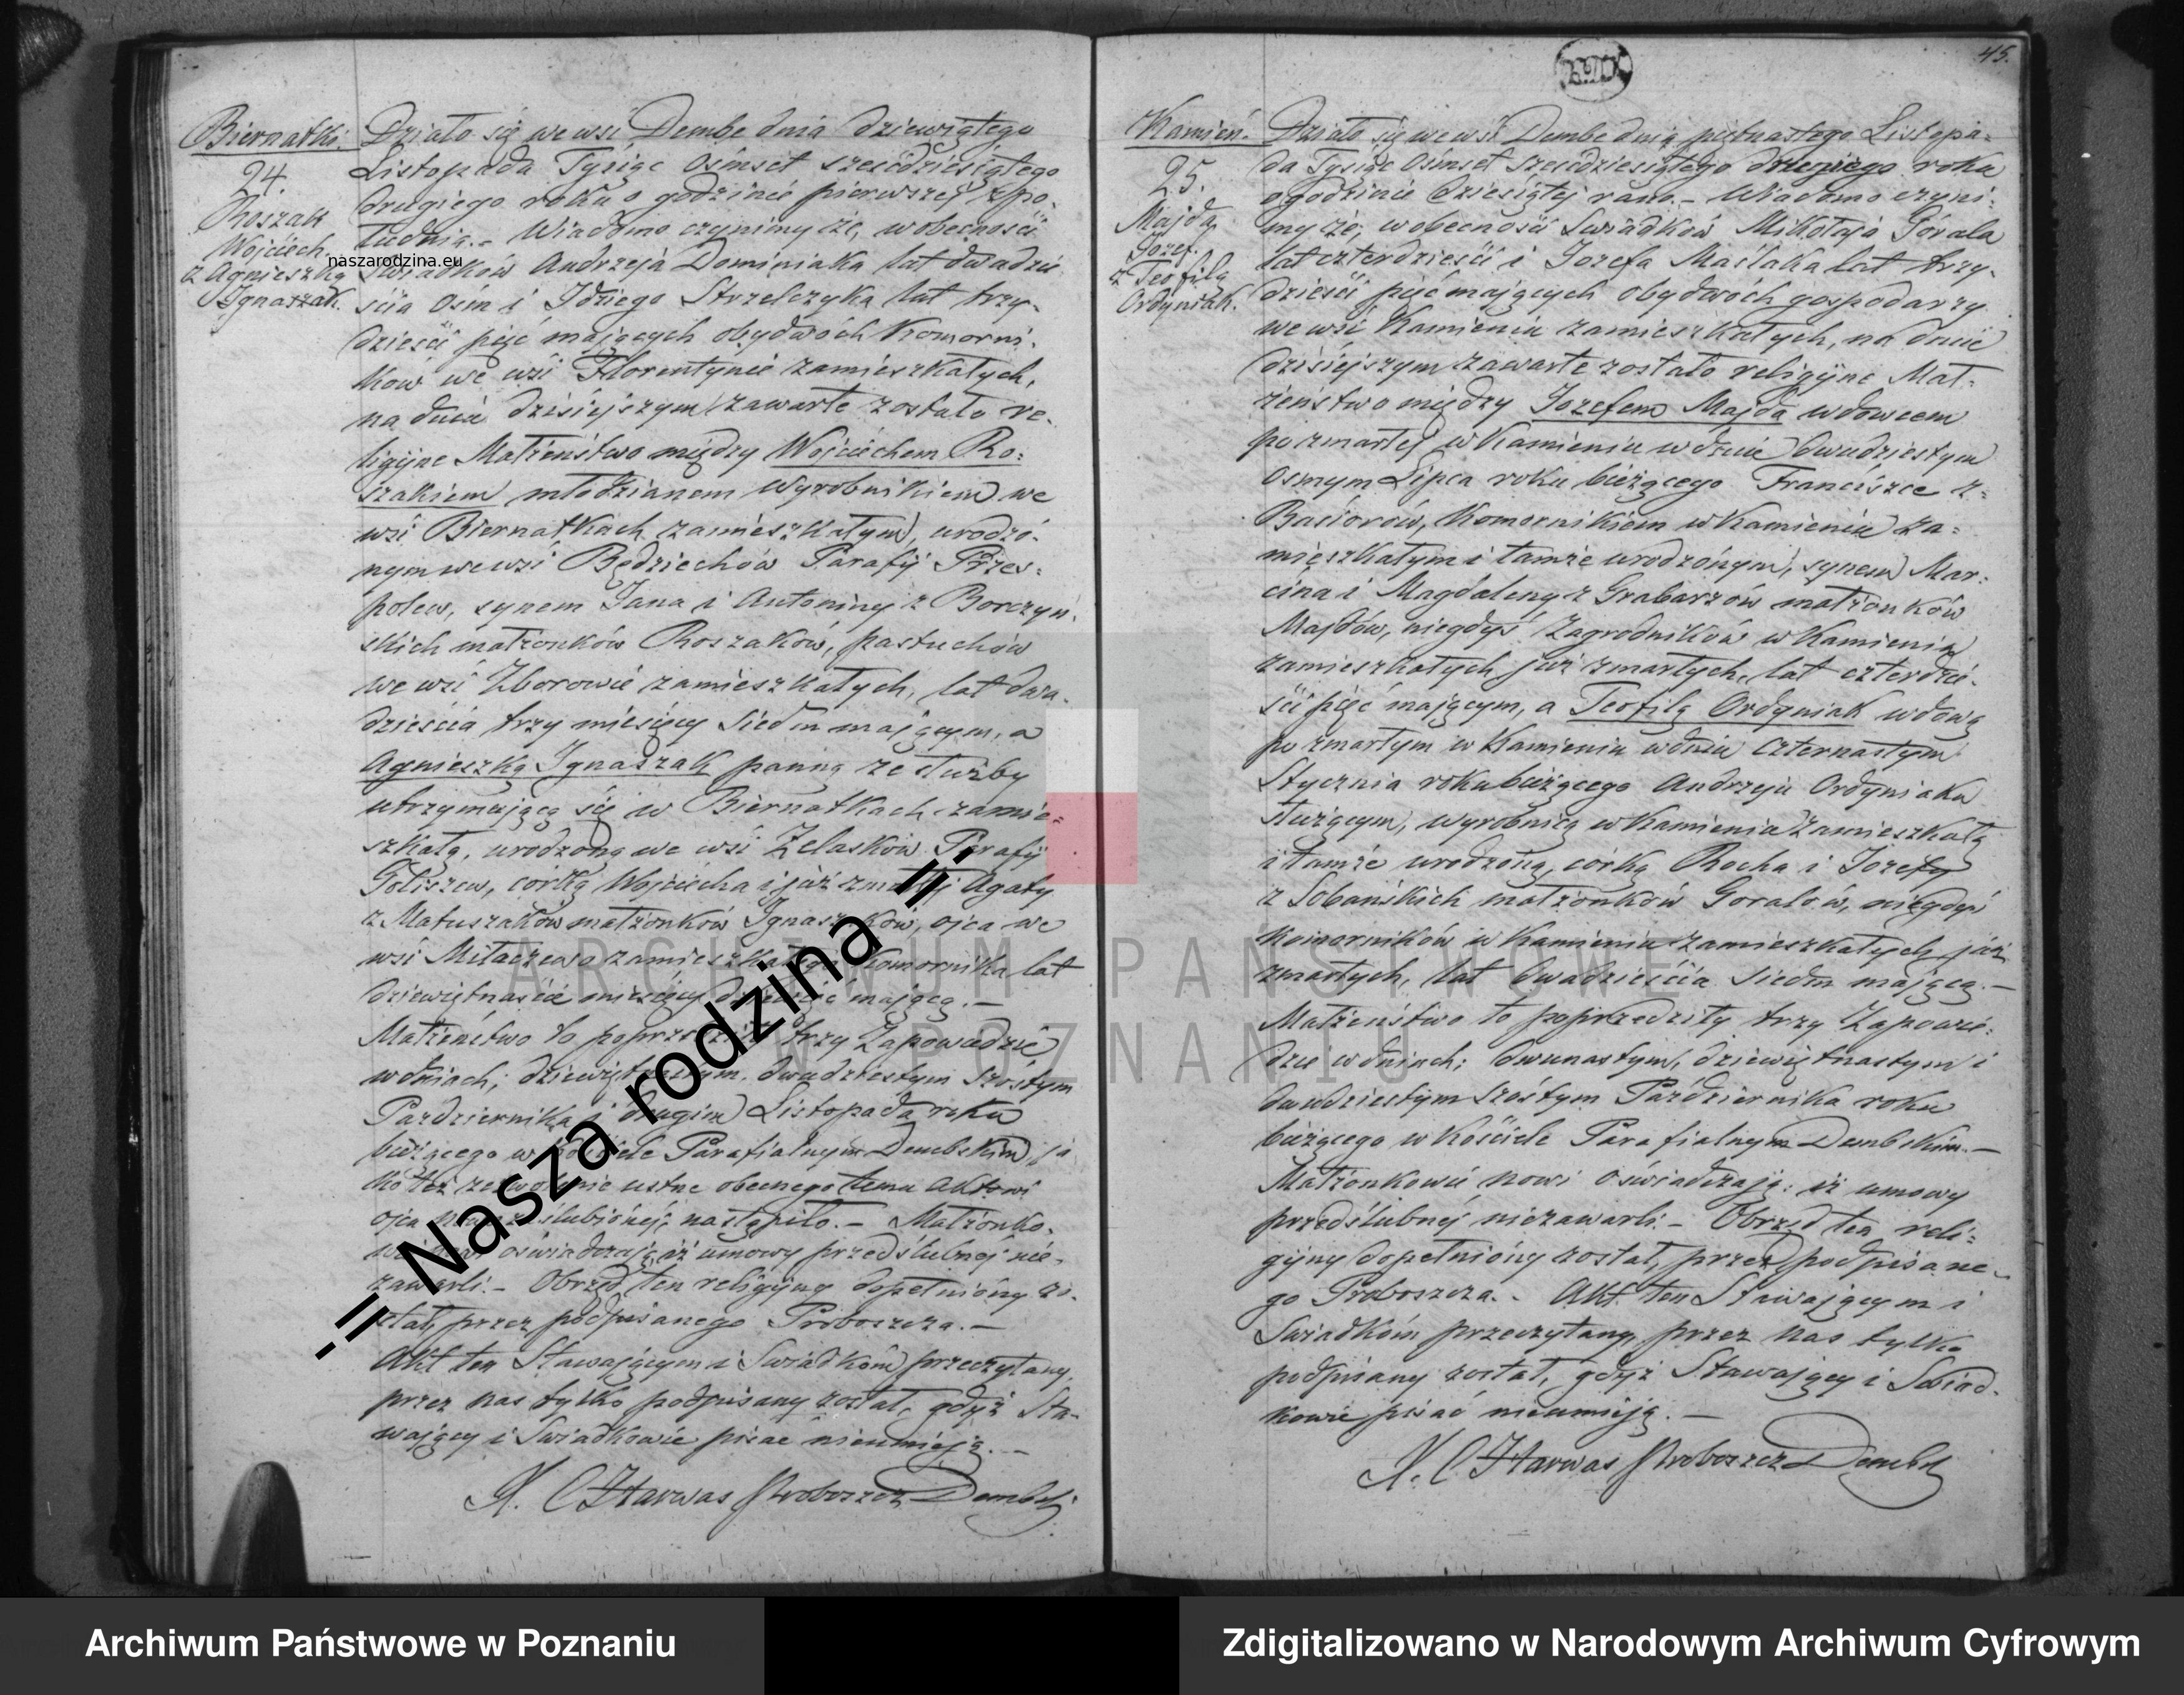 45.
Biernatki.
24.
Roszak
Wojciech
z Agnieszką
Ignaszak.
Działo się we wsi Dembe dnia dziewiątego
Listopada Tysiąc Ośmset sześćdziesiątego
drugiego roku o godzinie pierwszej z po-
łudnia.- Wiadomo czynimy że, w obecności
świadków Andrzeja Dominiaka lat dwadzie
ścia ośm i Idziego Strzelczyka lat trzy-
dzieści pięć mających obydwóch Komorni-
ków we wsi Florentynie zamieszkałych,
na dniu dzisiejszym zawarte zostało re-
ligijne Małżeństwo między Wojciechem Ro-
szakiem młodzianem wyrobnikiem we
wsi Biernatkach zamieszkałym, urodzo-
nym we wsi Będziechów Parafij Przes-
polew, synem Jana i Antoniny z Borczyń-
skich małżonków Roszaków, pastuchów
we wsi Zborowie zamieszkałych, lat dwa-
dzieścia trzy miesięcy siedm mającym, a
Agnieszką Ignaszak panną ze służby
utrzymującą się w Biernatkach zamie-
szkałą, urodzoną we wsi Żelasków Parafij
Goliszew, córką Wojciecha i już zmarłej Agaty
z Matuszaków małżonków Ignaszaków, ojca we
wsi Miłaczewo zamieszkałego Komornika lat
dziewiętnaście miesięcy mającą.-
Małżeństwo to poprzedziły trzy Zapowiedzie
w dniach; dziewiętnastym, dwudziestym szóstym
Października i drugim Listopada roku
bieżącego w Kościele Parafialnym Dembskim, ja
ko też zezwolenie ustne obecnego temu Aktowi
ojca nowozaślubionej, nastąpiło.- Małżonko-
wie nowi oświadczają iż umowy przedślubnej nie-
zawarli.- Obrzęd ten religijny dopełniony zo-
stał, przez podpisanego Proboszcza.-
Akt ten Stawającym i Świadkom przeczytany,
przez nas tylko podpisany został, gdyż Sta-
wający i Świadkowie pisać nieumieją.-
X. C. Harwas Proboszcz Dembski
Kamień.
25.
Majda
Jozef.
z Teofilą
Ordyniak.
Działo się we wsi Dembe dnia piętnastego Listopa-
da Tysiąc Ośmset Sześćdziesiątego drugiego roku
o godzinie dziesiątej rano.- Wiadomo czyni-
my że, w obecności Świadków Mikołaja Górala
lat czterdzieści i Jozefa Maślaka lat trzy-
dzieści pięć mających obydwóch gospodarzy
we wsi Kamieniu zamieszkałych, na dniu
dzisiejszym zawarte zostało religijne Mał-
żeństwo między Jozefem Majda wdowcem
po zmarłej w Kamieniu w dniu dwudziestym
osmym Lipca roku bieżącego Franciszce z
Basiorów, Komornikiem w Kamieniu za-
mieszkałym i tamże urodzonym, synem Mar-
cina i Magdaleny z Grabarzów małżonków
Majdów, niegdyś Zagrodników w Kamieniu
zamieszkałych już zmarłych, lat czterdzie-
ści pięć mającym, a Teofilą Ordyniak wdową
po zmarłym w Kamieniu w dniu czternastym
Stycznia roku bieżącego Andrzeju Ordyniaku
służącym, wyrobnicą w Kamieniu zamieszkałą
i tamże urodzoną, córką Rocha i Jozefy
z Sobańskich małżonków Goralów, niegdyś
komorników w Kamieniu zamieszkałych już
zmarłych, lat dwadzieścia siedm mającą.-
Małżeństwo to poprzedziły trzy Zapowie-
dzie w dniach; dwunastym, dziewiętnastym i
dwudziestym szóstym Października roku
bieżącego w Kościele Parafialnym Dembskim.-
Małżonkowie nowi oświadczają: iż umowy
przedślubnej niezawarli.- Obrzęd ten reli-
gijny dopełniony został, przez podpisane-
go Proboszcza.- Akt ten Stawającym i
Świadkom przeczytany, przez nas tylko
podpisany został, gdyż Stawający i Świad-
kowie pisać nieumieją.-
X. C. Harwas Proboszcz Dembski
naszarodzina.eu
-= Nasza rodzina =-
ARCHIWUM PAŃSTWOWE
W POZNANIU
Archiwum Państwowe w Poznaniu
Zdigitalizowano w Narodowym Archiwum Cyfrowym